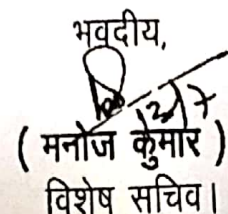 भवदीय,
( मनोज कुमार )
विशेष सचिव।